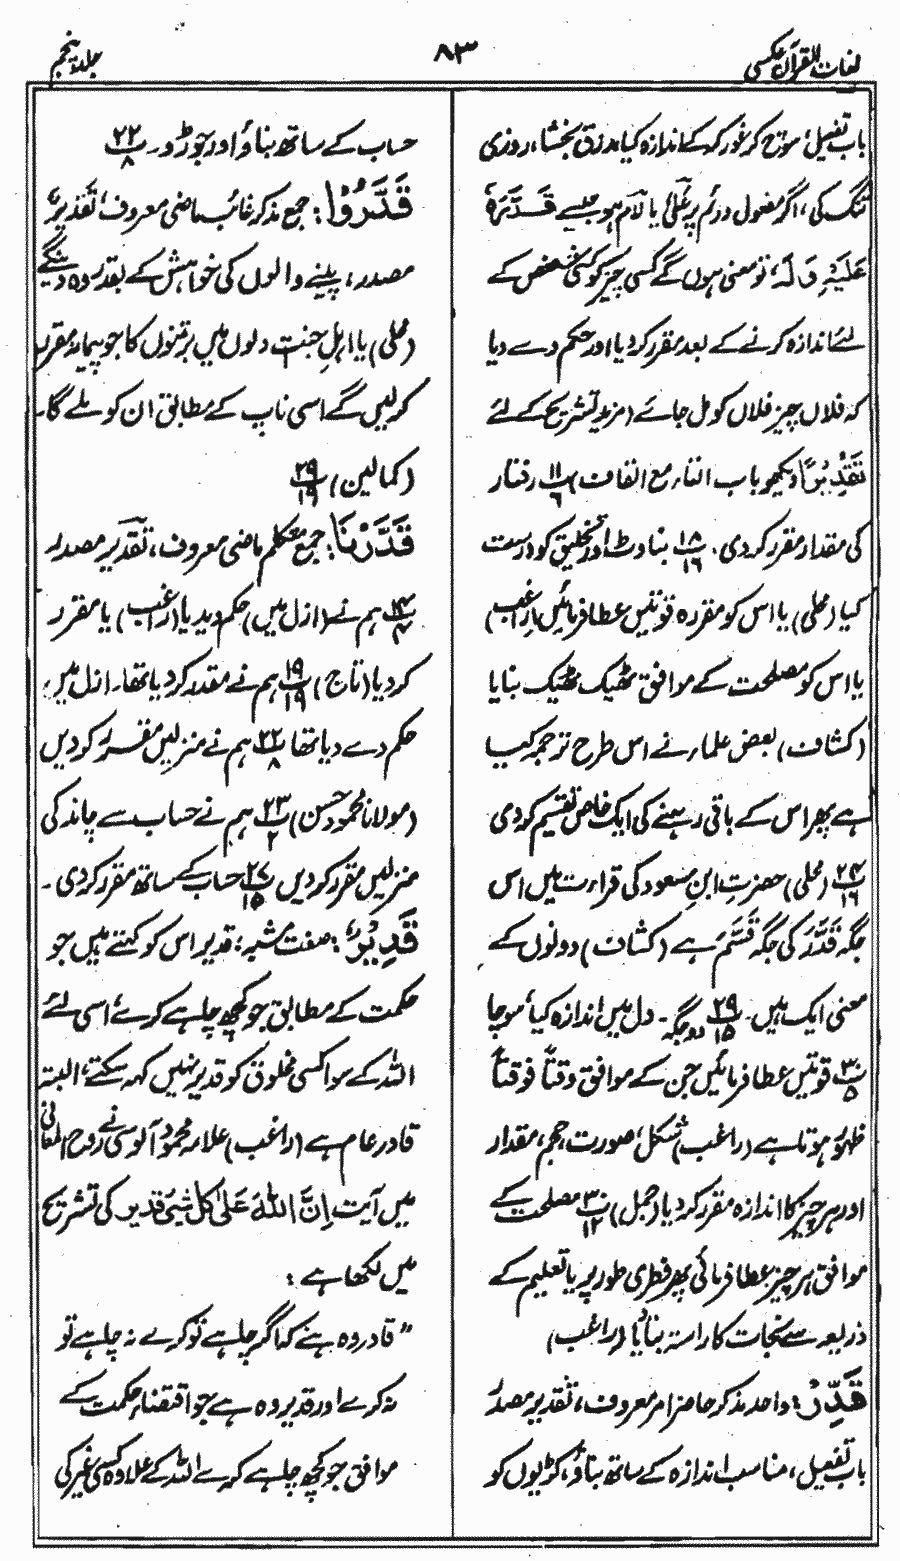 لغات القرآن عکسی
۸۳
جلد پنجم
باب تفعیل، سوچ کر غور کر کے اندازہ کیا، رزق بخشا، روزی
تنگ کی، اگر مفعول دوئم پر علیٰ یا لام ہو جیسے قَدَّرَہٗ
عَلَیْہِ وَ لَہٗ، تو معنی ہوں گے کسی چیز کو کسی شخص کے
لئے اندازہ کرنے کے بعد مقرر کر دیا اور حکم دے دیا
کہ فلاں چیز فلاں کو مل جائے (مزید تشریح کے لئے
نَقْدِرُ دیکھو باب النار مع القاف) پ ۱۱/۶ رفتار
کی مقدار مقرر کر دی۔ پ ۱۸/۱۶ بناوٹ اور تخلیق کو درست
کیا (محلی) یا اس کو مقررہ قوتیں عطا فرمائیں (راغب)
یا اس کو مصلحت کے موافق ٹھیک ٹھیک بنایا
(کشاف) بعض علماء نے اس طرح ترجمہ کیا
ہے پھر اس کے باقی رہنے کی ایک خاص تقسیم کر دی
پ ۲۴/۱۶ (محلی) حضرتِ ابنِ مسعود کی قراءت میں اس
جگہ قَدَّرَ کی جگہ قَسَّمَ ہے (کشاف) دونوں کے
معنی ایک ہیں۔ پ ۲۹/۱۵ دو جگہ۔ دل میں اندازہ کیا، سوچا
پ ۳۰/۵ قوتیں عطا فرمائیں جن کے موافق وقتاً فوقتاً
ظہور ہوتا ہے (راغب) شکل، صورت، حجم، مقدار
اور ہر چیز کا اندازہ مقرر کر دیا (جمل) پ ۳۰/۱۲ مصلحت کے
موافق ہر چیز عطا فرمائی پھر فطری طور پر یا تعلیم کے
ذریعہ سے نجات کا راستہ بتایا (راغب)
قَدِّرْ: واحد مذکر حاضر امر معروف، تقدیر مصدر
باب تفعیل، مناسب اندازہ کے ساتھ بناؤ، کڑیوں کو
حساب کے ساتھ بناؤ اور جوڑو۔ پ ۲۲/۸
قَدَّرُوْا: جمع مذکر غائب ماضی معروف، تقدیر
مصدر، پینے والوں کی خواہش کے بقدر وہ دینگے
(محلی) یا اہلِ جنت دلوں میں برتنوں کا جو پیمانہ مقرر
کر لیں گے اسی ناپ کے مطابق ان کو ملے گا۔
(کمالین) پ ۲۹/۱۹
قَدَّرْنَا: جمع متکلم ماضی معروف، تقدیر مصدر
پ ۱۴/۴ ہم نے (ازل میں) حکم دیدیا (راغب) یا مقرر
کر دیا (تاج) پ ۱۹/۱۹ ہم نے مقدر کر دیا تھا۔ ازل میں
حکم دے دیا تھا پ ۲۲/۸ ہم نے منزلیں مقرر کر دیں
(مولانا محمود حسن) پ ۲۳/۲ ہم نے حساب سے چاند کی
منزلیں مقرر کر دیں پ ۲۷/۱۵ حساب کے ساتھ مقرر کر دی۔
قَدِیْرٌ: صفت مشبہ، قدیر اس کو کہتے ہیں جو
حکمت کے مطابق جو کچھ چاہے کرے، اسی لئے
اللہ کے سوا کسی مخلوق کو قدیر نہیں کہہ سکتے، البتہ
قادر عام ہے (راغب) علامہ محمود آلوسی نے روح المعانی
میں آیت اِنَّ اللّٰہَ عَلٰی کُلِّ شَیْءٍ قَدِیر کی تشریح
میں لکھا ہے:
”قادر وہ ہے کہ اگر چاہے تو کرے نہ چاہے تو
نہ کرے اور قدیر وہ ہے جو اقتضاءِ حکمت کے
موافق جو کچھ چاہے کرے اللہ کے علاوہ کسی غیر کی